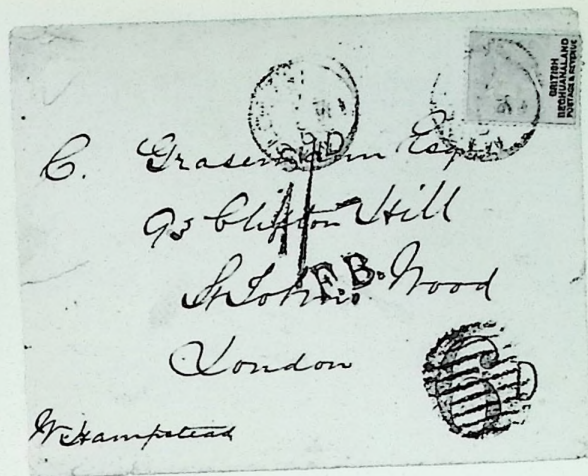 BRITISH
BECHUANALAND
POSTAGE & REVENUE
C. Esq
93 Clifton Hill
F.B.
St Johns Wood
London
W. Hampstead